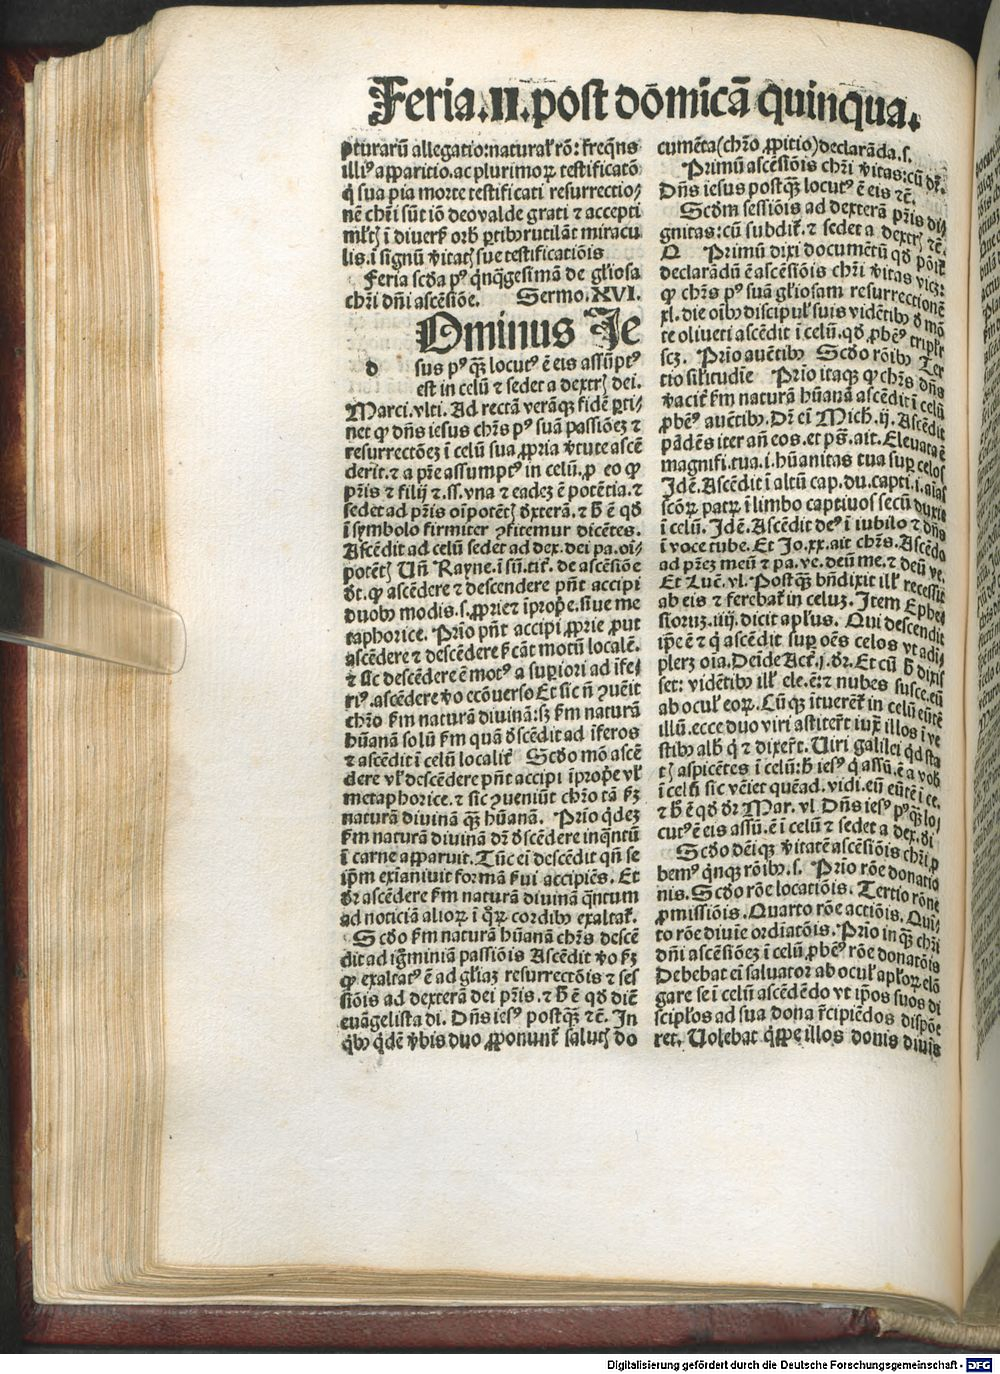 Feria.II.post dōmicā quinqua.
pturarū allegatio:natural' rō: freq̄ns
illiꝰ apparitio.ac plurimoꝝ testificatō
q̄ sua pia morte testificati resurrectio⸗
nē chr̄i sūt iō deo valde grati ⁊ accepti
ml't; ī diuers; orb; ꝑtibꝫ rutilāt miracu
lis.ī signū v̄itat; sue testificatiōis
Feria sc̄da pꝰ q̄nq̄gesimā de gl'iosa
chr̄i dn̄i ascēsiōe. Sermo.XVI.
Dominus Je
d
sus pꝰ q̄ꝫ locutꝰ ē eis assūptꝰ
est in celū ⁊ sedet a dextr; dei.
Marci.vlti. Ad rectā verāqꝫ fidē ꝑti⸗
net ꝙ dn̄s iesus chr̄s pꝰ suā passiōeꝫ ⁊
resurrectōeꝫ ī celū sua ꝓpria v̄tute ascē
derit.⁊ a pr̄e assumptꝰ in celū.ꝑ eo ꝙ
pr̄is ⁊ filij ⁊.ss.vna ⁊ eadeꝫ ē potētia.⁊
sedet ad pr̄is oīpotēt; dexterā.⁊ h̄ ē qd̄
ī symbolo firmiter ꝯfitemur dicētes.
Ascēdit ad celū sedet ad dex.dei pa.oī⸗
potēt; Un̄ Rayne.ī sū.tit'. de ascēsiōe
dt. ꝙ ascēdere ⁊ descendere pn̄t accipi
duobꝫ modis.s.ꝓprie ⁊ īprop̄e.siue me
taphorice. Prīo pn̄t accipi ꝓprie prout
ascēdere ⁊ descēdere s'cāt motū localē.
⁊ sic descēdere ē motꝰ a suꝑiori ad īfe⸗
riꝰ.ascēdere v̄o ecōuerso Et sic n̄ ꝯuēit
chr̄o s'm naturā diuinā:sꝫ s'm naturā
hūanā solū s'm quā descēdit ad īferos
⁊ ascēdit ī celū localit' Scd̄o mō ascē
dere vl' descēdere pn̄t accipi īprop̄e vl'
metaphorice.⁊ sic ꝯueniūt chr̄o tā s'ꝫ
naturā diuinā q̄ꝫ hūanā. Prīo q̄dez
s'm naturā diuinā dr̄ descēdere inq̄ntū
ī carne apparuit. Tūc ei descēdit qn̄ se
ip̄m exīaniuit formā s'ui accipiēs. Et
dr̄ ascēdere s'm naturā diuinā q̄ntum
ad noticiā alioꝝ ī q̄ꝝ cordibꝫ exaltat'.
Scd̄o s'm naturā hūanā chr̄s descē
dit ad iḡminiā passiōis Ascēdit v̄o s'ꝫ
ꝙ exaltatꝰ ē ad gl'iaꝫ resurrectōis ⁊ ses
siōis ad dexterā dei pr̄is.⁊ h̄ ē qd̄ diē
euāgelista di. Dn̄s iesꝰ postq̄ꝫ ⁊c̄. In
q̄bꝫ q̄dē v̄bis duo ꝓponunt' salut; do
cumēta(chr̄o ꝓpitio)declarāda.s.
Primū ascēsiōis chr̄i v̄itas:cū dr̄.
Dn̄s iesus postq̄ꝫ locutꝰ ē eis ⁊c̄.
Scd̄m sessiōis ad dexterā pr̄is di⸗
gnitas:cū subdit'. ⁊ sedet a dextr; ⁊c̄.
Primū dixi documētū qd̄ pōit'
declarādū ē ascēsiōis chr̄i v̄itas vicꝫ:
ꝙ chr̄s pꝰ suā gl'iosam resurrectionē
xl.die oībꝫ discipul' suis vidētibꝫ d̄ mō
te oliueti ascēdit ī celū.qd̄ ꝓbēꝰ tripl'r
scꝫ. Prīo auc̄tibꝫ Scd̄o rōibꝫ Ter
tio sil'itudīe Prīo itaqꝫ ꝙ chr̄s dn̄s
v̄acit' s'm naturā hūanā ascēdit ī celū
ꝓbēꝰ auc̄tibꝫ. Dr̄ ei Mich'.ij. Ascēdit
pādēs iter an̄ eos.et ps̄.ait. Eleuata ē
magnifi.tua.i.hūanitas tua suꝑ celos
Idē. Ascēdit ī altū cap.du.capti.i.aīas
sc̄oꝝ patꝝ ī limbo captiuos secū duxit
ī celū. Idē. Ascēdit deꝰ ī iubilo ⁊ dn̄s
ī voce tube. Et Jo.xx.ait chr̄s. Ascēdo
ad pr̄eꝫ meū ⁊ pa.ve.deū me.⁊ deū ve.
Et Luc̄.vl. Postq̄ꝫ bn̄dixit ill' recessit
ab eis ⁊ ferebat' in celuꝫ. Item Ephe⸗
sioruꝫ.iiij.dicit apl'us. Qui descendit
ip̄e ē ⁊ q̄ ascēdit suꝑ oēs celos vt adi⸗
plerꝫ oīa. Deīde Act'.j.dr̄. Et cū h̄ dixis
set: vidētibꝫ ill' ele.ē:⁊ nubes susce.eū
ab ocul' eoꝝ. Cūqꝫ ītuerēt' in celū eūtē
illū.ecce duo viri astiter't iuxꝫ illos ī ve
stibꝫ alb; q̄ ⁊ dixer't. Uiri galilei qd̄ sta
t; aspicētes ī celū:h̄ iesꝰ q̄ assū.ē a vob;
ī celū sic vēiet quēad.vidi.eū eūtē ī ce.
⁊ h̄ ē qd̄ dr̄ Mar. vl Dn̄s iesꝰ pꝰq̄ꝫ lo⸗
cutꝰ ē eis assū.ē ī celū ⁊ sedet a dex.di
Scd̄o dēiqꝫ v̄itatē ascēsiōis chr̄i ꝓ
bemꝰ q̄nqꝫ rōibꝫ.s. Prīo rōe donatio
nis. Scd̄o rōe locatiōis. Tertio rōne
ꝓmissiōis. Quarto rōe actiōis. Qui⸗
to rōe diuīe ordīatōis. Prīo inq̄ꝫ chr̄i
dn̄i ascēsiōeꝫ ī celū.ꝓbēꝰ rōe donatōis
Debebat ei saluator ab ocul' apl'oꝝ elō
gare se ī celū ascēdēdo vt ip̄os suos di
scipl'os ad sua dona r̄cipiēdos dispōe
ret. Uolebat q̄ppe illos donis diuīs
Digitalisierung gefördert durch die Deutsche Forschungsgemeinschaft - DFG